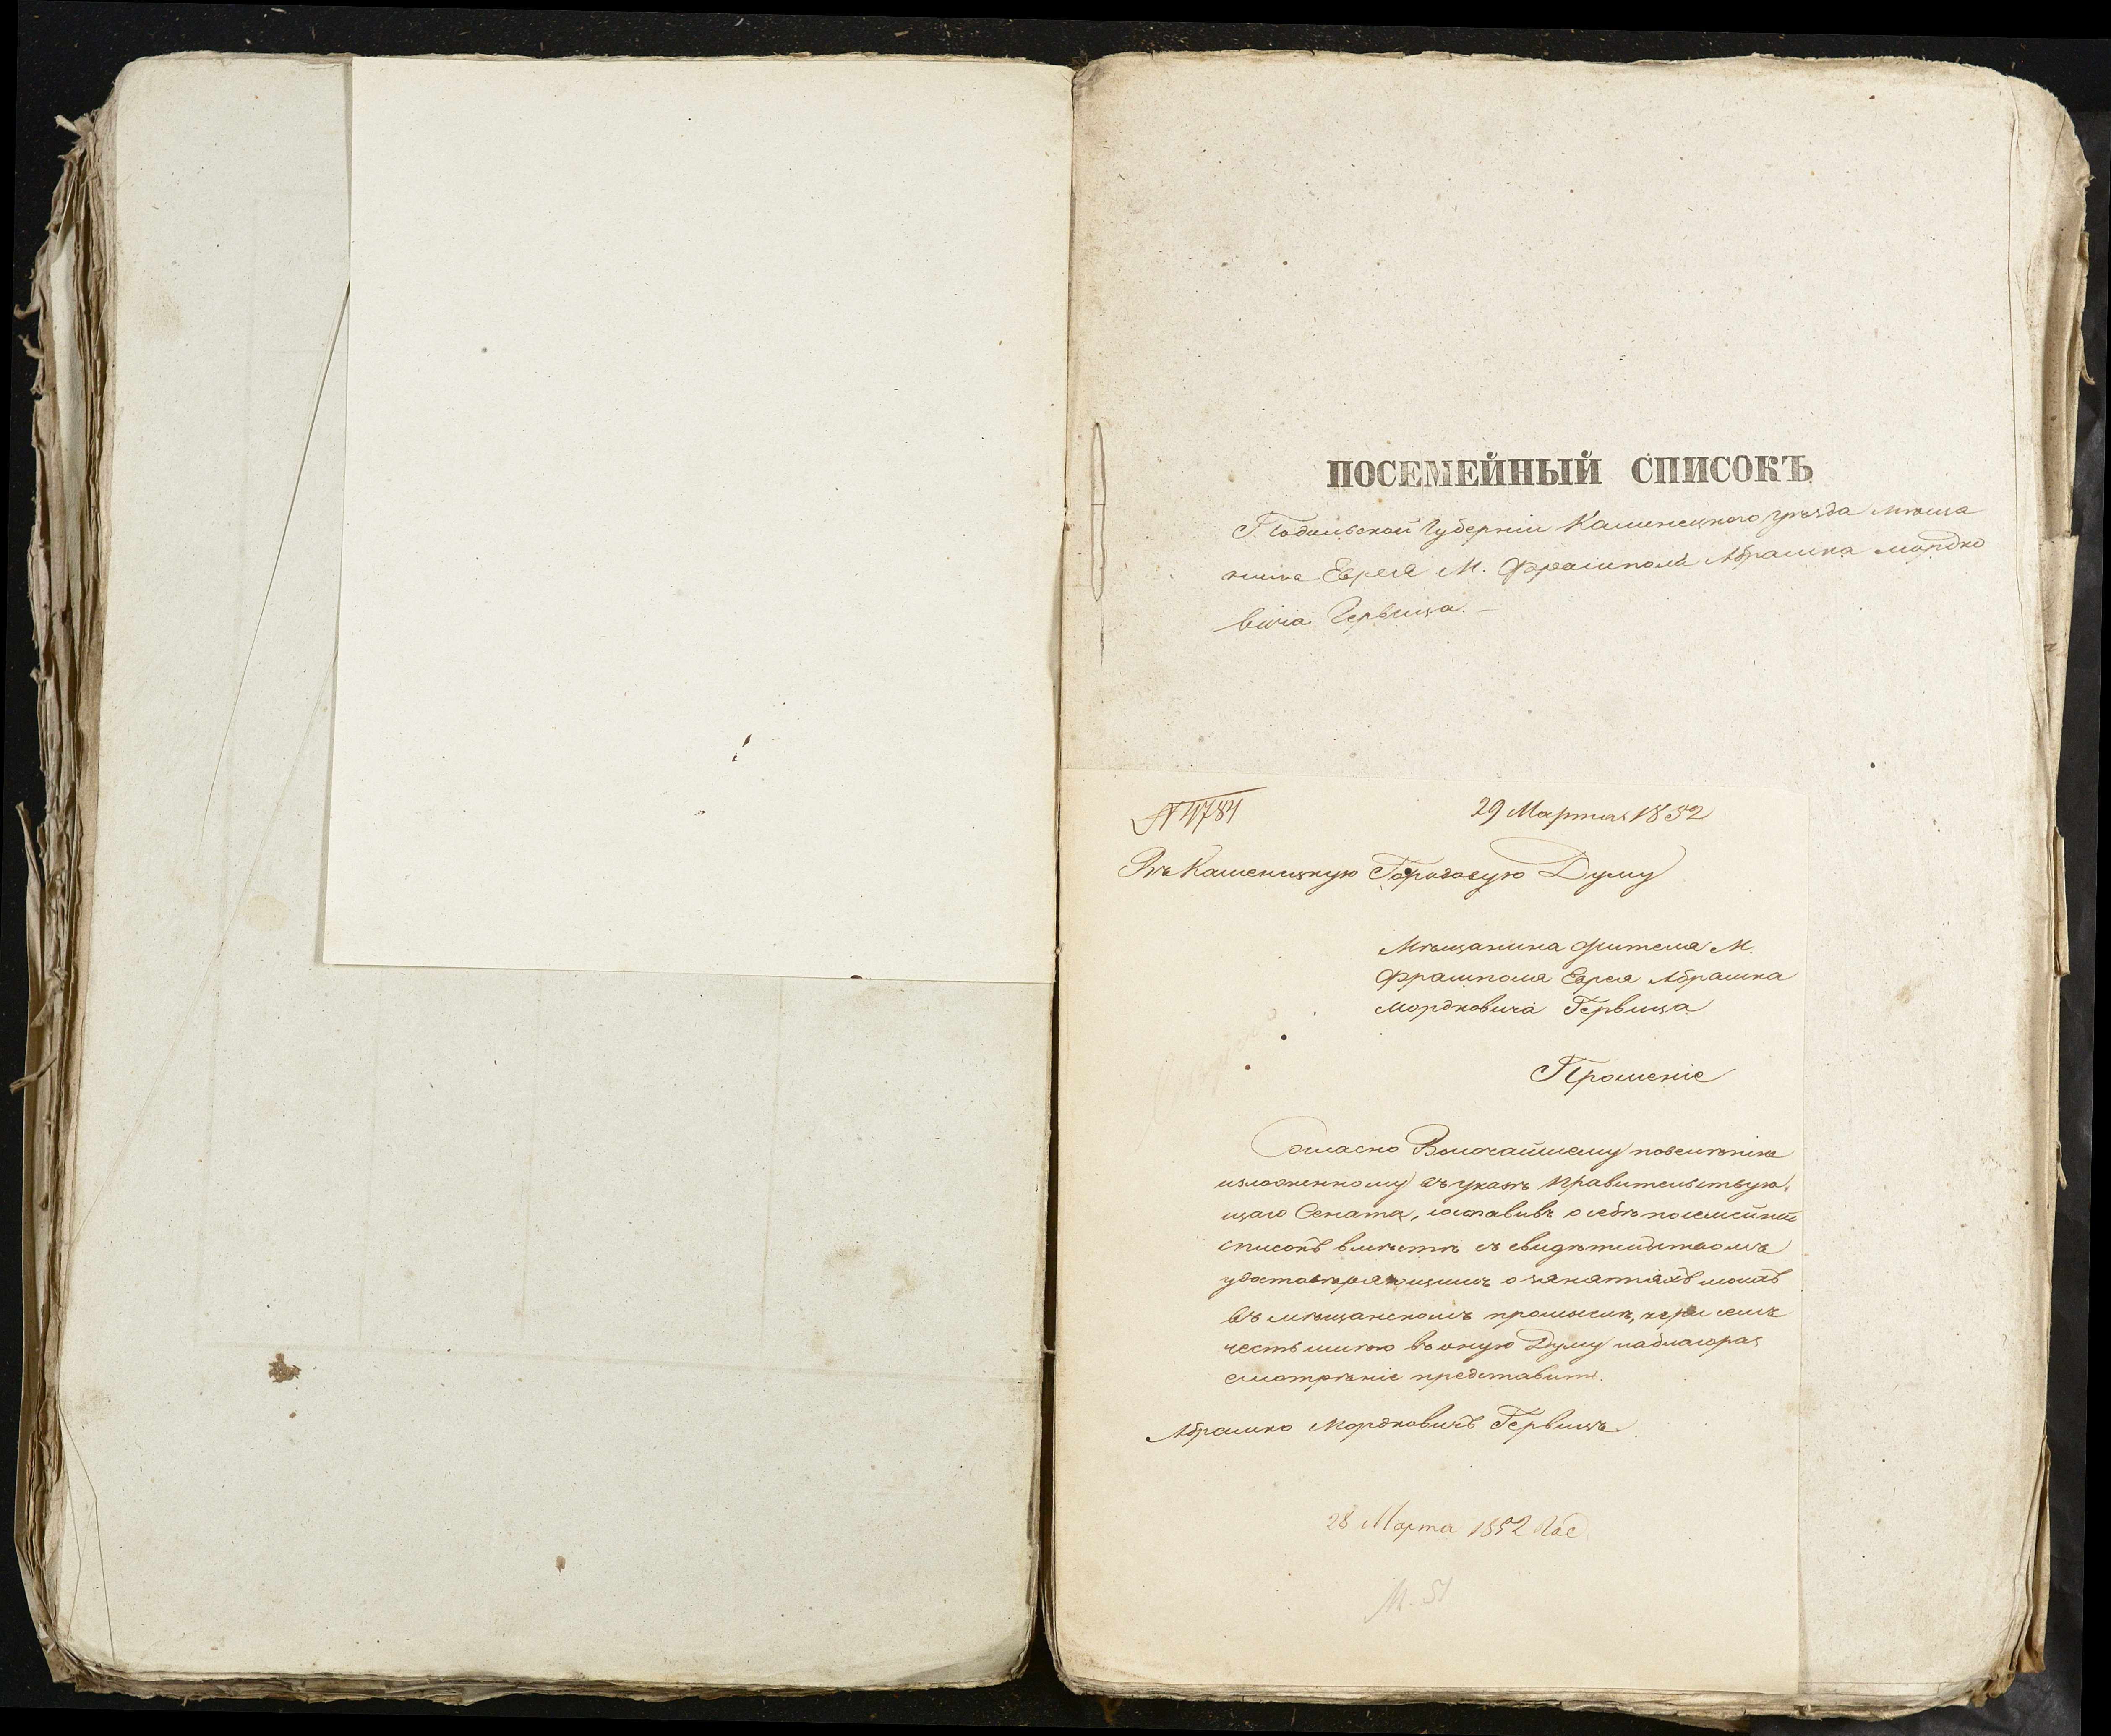 ПОСЕМЕЙНЫЙ СПИСОКЪ
Подольской Губерніи Каменецкого уѣзда мѣща
нина Еврея М. Фрампола Абрамка Мордко
вича Гервица. —
N 4784
29 Марта 1852
Въ Каменецкую Городовую Думу
Мѣщанина жителя М.
Фрампола Еврея Абрамка
Мордковича Гервица
Прошеніе
Согласно Высочайшему повелѣнію
изложенному въ указѣ Правительствую,
щаго Сената, составивъ о себѣ посемейный
списокъ вмѣстѣ съ свидѣтельствомъ
удостовѣряющимъ о занятіяхъ моихъ
въ мѣщанскомъ промыслѣ, при семъ
честь имѣю въ оную Думу на благорас
смотрѣніе представить.
Абрамко Мордковичъ Гервицъ.
28 Марта 1852 год
М. 51